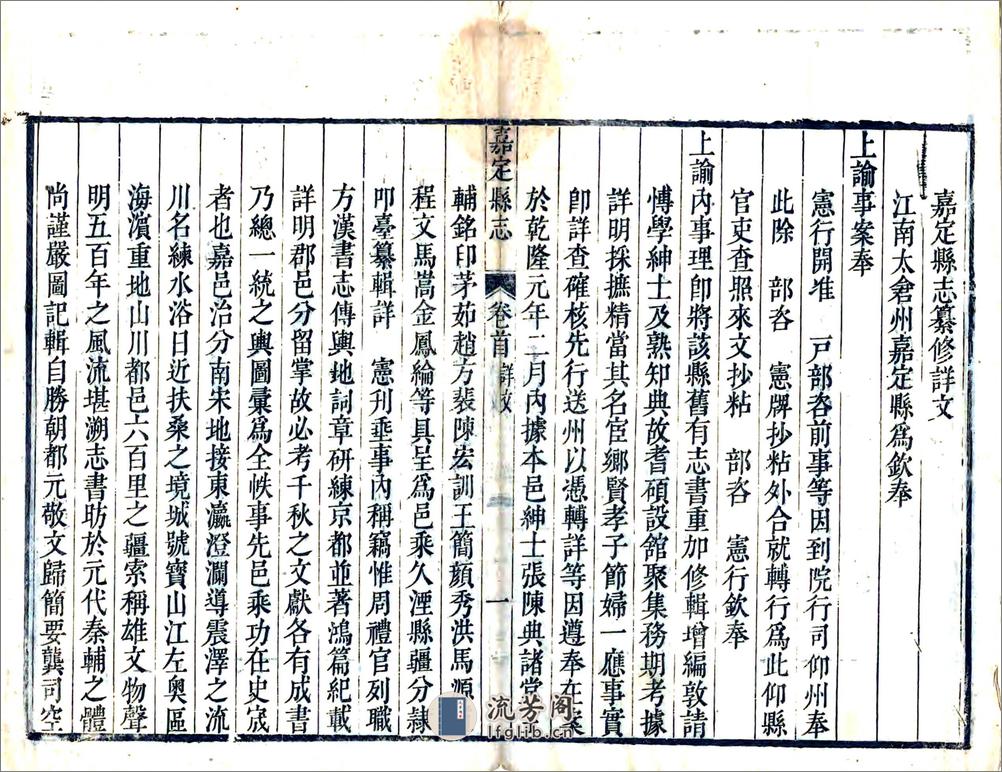 嘉定縣志纂修詳文
江南太倉州嘉定縣爲欽奉
上諭事案奉
憲行開准　戸部咨前事等因到院行司仰州奉
此除　部咨　憲牌抄粘外合就轉行爲此仰縣
官吏查照來文抄粘　部咨　憲行欽奉
上諭內事理卽將該縣舊有志書重加修輯增編敦請
愽學紳士及熟知典故耆碩設舘聚集務期考據
詳明採摭精當其名宦鄉賢孝子節婦一應事實
卽詳查確核先行送州以憑轉詳等因遵奉在案
於乾隆元年二月內據本邑紳士張陳典諸堂
嘉定縣志　卷首　詳文　一
輔銘印茅茹趙方裴陳宏訓王簡顏秀洪馬源
程文馬嵩金鳳綸等具呈爲邑乘久湮縣疆分隸
叩臺纂輯詳　憲刊埀事內稱竊惟周禮官列職
方漢書志傳輿地詞章硏練京都並著鴻篇紀載
詳明郡邑分留掌故必考千秋之文獻各有成書
乃總一統之輿圖彙爲全帙事先邑乘功在史宬
者也嘉邑治分南宋地接東瀛澄瀾導震澤之流
川名練水浴日近扶桑之境城號寶山江左奧區
海濵重地山川都邑六百里之疆索稱雄文物聲
明五百年之風流堪溯志書昉於元代秦輔之體
尚謹嚴圖記輯自勝朝都元敬文歸簡要龔司空
流芳阁
lfglib.cn